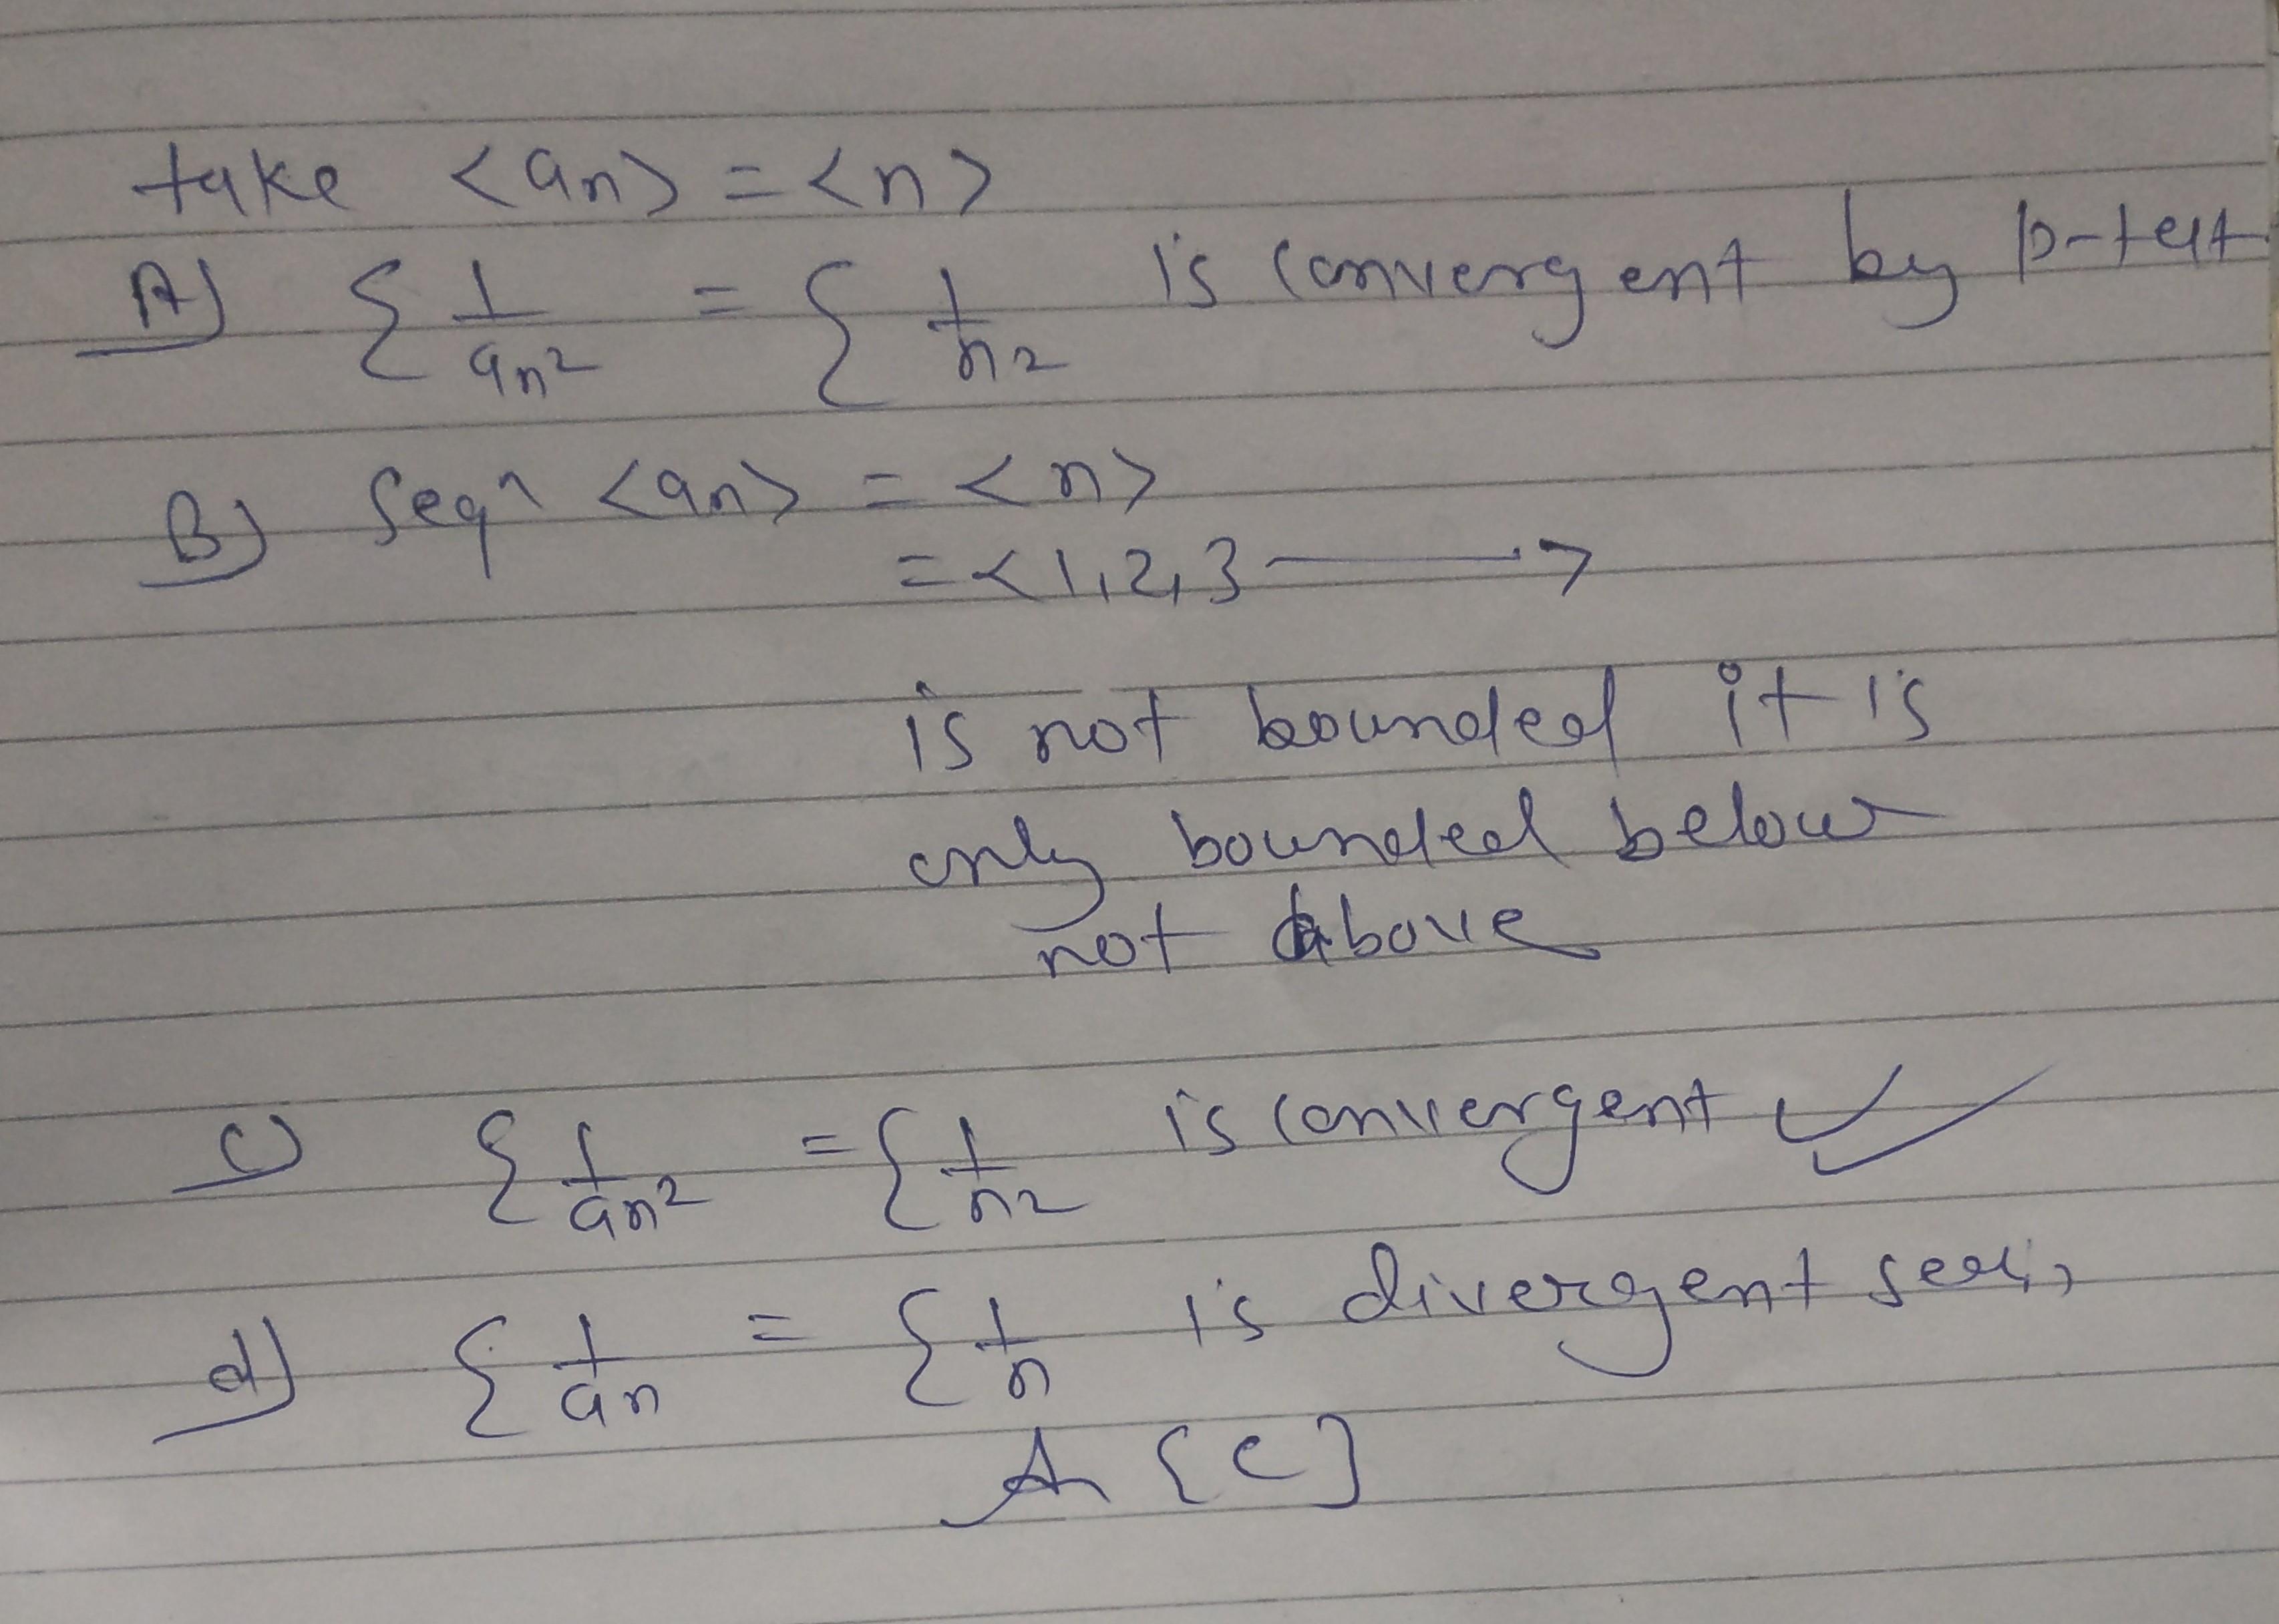 take <an> = <n>
A) Σ 1/an² = Σ 1/n² is convergent by p-test
B) Seqn <an> = <n>
= <1,2,3 ⟶>
is not bounded it is
only bounded below
not above
c) Σ 1/an² = Σ 1/n² is convergent ✓✓
d) Σ 1/an = Σ 1/n is divergent
[c]